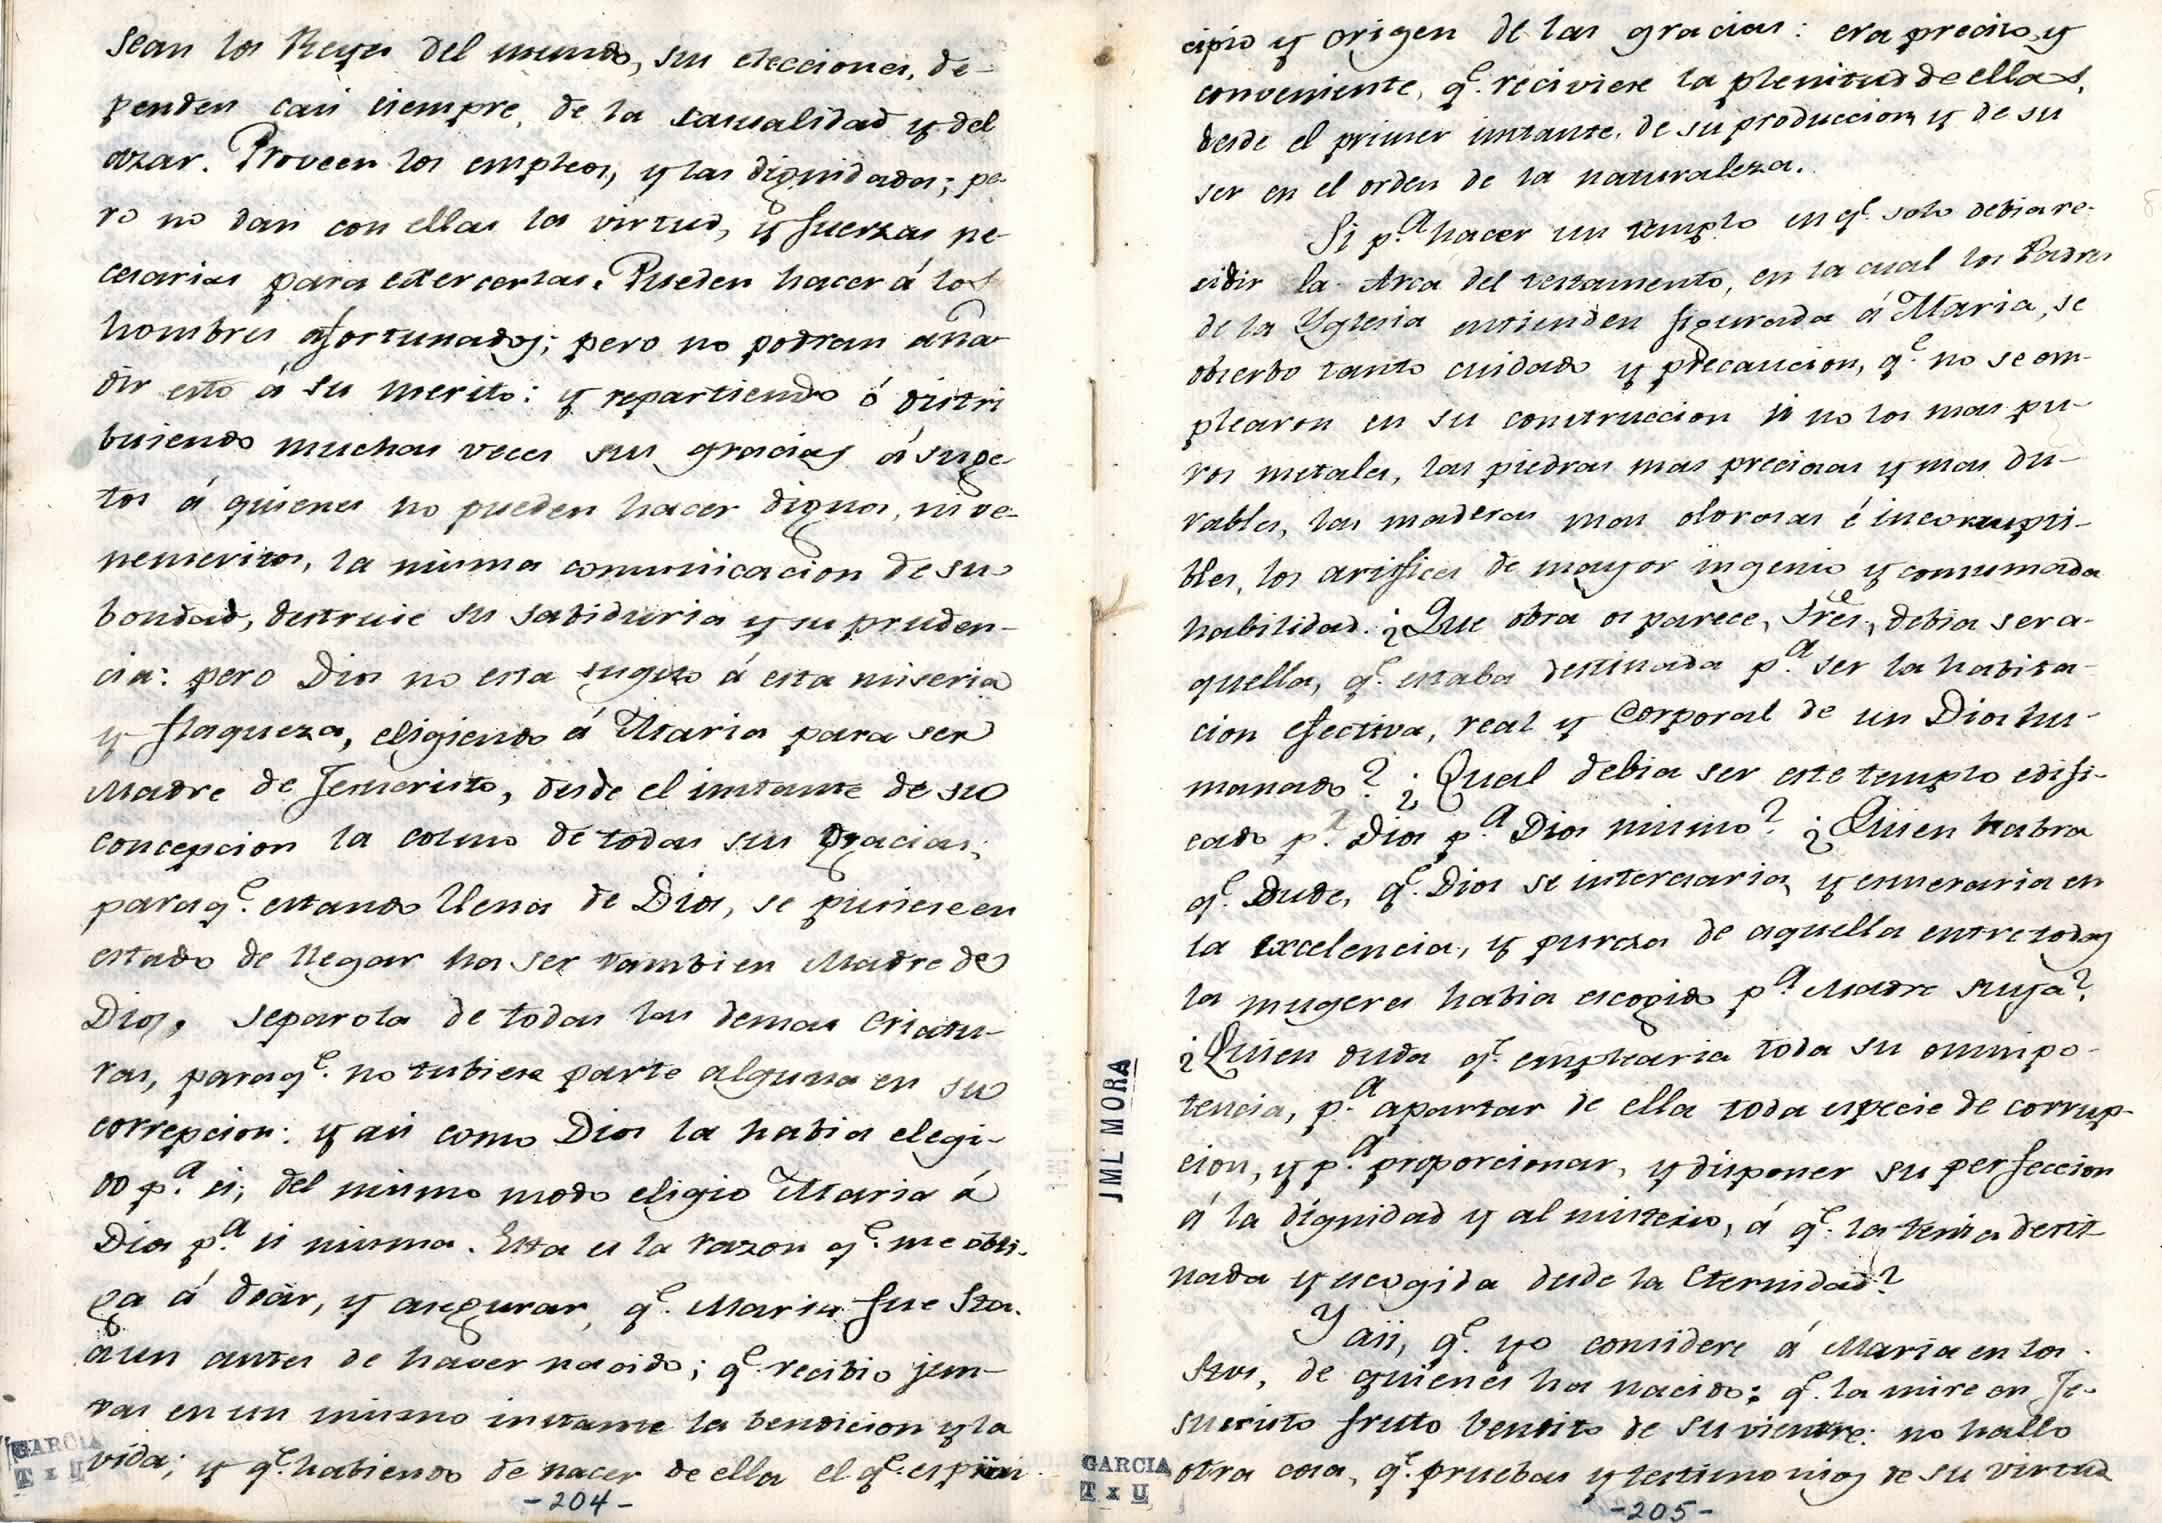 Sean los Reyes del mundo, sus elecciones, de-
penden casi siempre, de la casualidad y del
azar. Proveen los empleos, y las dignidades; pe-
ro no dan con ellas la virtud, y fuerzas ne-
cesarias para exercerlas. Pueden hacer á los
hombres afortunados; pero no podran aña
dir esto á su merito: y repartiendo ó distri
buiendo muchas veces sus gracias á suge
tos á quienes no pueden hacer dignos, ni ve-
nemeritos, la misma comunicacion de su
bondad, destruie su sabiduria y su pruden-
cia: pero Dios no esta sugeto á esta miseria
y flaqueza, eligiendo á Maria para ser
Madre de Jesucristo, desde el instante de su
concepcion la colmo de todas sus gracias;
para q.e estando llena de Dios, se pusiese en
estado de llegar ha ser tambien Madre de
Dios, separola de todas las demas criatu-
ras, para q.e no tubiese parte alguna en su
correpcion: y asi como Dios la habia elegi-
do p.a si; del mismo modo eligio Maria á
Dios p.a si misma. Esta es la razon q.e me obli-
ga á decir, y asegurar, q.e Maria fue Sta.
aun antes de haver nacido; q.e recibio jun-
tas en un mismo instante la bendicion y la
vida; y q.e habiendo de nacer de ella el q.e es prin
-204-
GARCIA
T x U
cipio y origen de las gracias: era preciso y
conveniente, q.e reciviese la plenitud de ellas,
desde el primer instante, de su produccion y de su
ser en el orden de la naturaleza.
Si p.a hacer un templo en q.e solo debia re-
sidir la Arca del testamento, en la cual los Padres
de la Yglesia entienden figurada á Maria, se
obserbo tanto cuidado y precaucion, q.e no se em-
plearon en su construccion si no los mas pu-
ros metales, las piedras mas preciosas y mas du-
rables, las maderas mas olorosas é incorrupti-
bles, los artifices de mayor ingenio y consumada
habilidad. ¿Que obra os parece, Sres., debia ser a-
quella, q.e estaba destinada p.a ser la habita-
cion efectiva, real y corporal de un Dios hu-
manado? ¿Qual debia ser este templo edifi-
cado p.r Dios p.a Dios mismo? ¿Quien habra
q.e dude, q.e Dios se interesaria, y esmeraria en
la excelencia, y pureza de aquella entre todas
la mugeres habia escogido p.a Madre suya?
¿Quien duda q.e emplearia toda su omnipo-
tencia, p.a apartar de ella toda especie de corrup-
cion, y p.a proporcionar, y disponer su perfeccion
á la dignidad y al misterio, á q.e la tenia desti-
nada y escogida desde la Eternidad?
Y asi, q.e yo considere á Maria en los
Stos, de quienes ha nacido: q.e la mire en Je-
sucristo fruto bendito de su vientre: no hallo
otra cosa, q.e pruebas y testimonios de su virtud
-205-
JML MORA
GARCIA
T x U